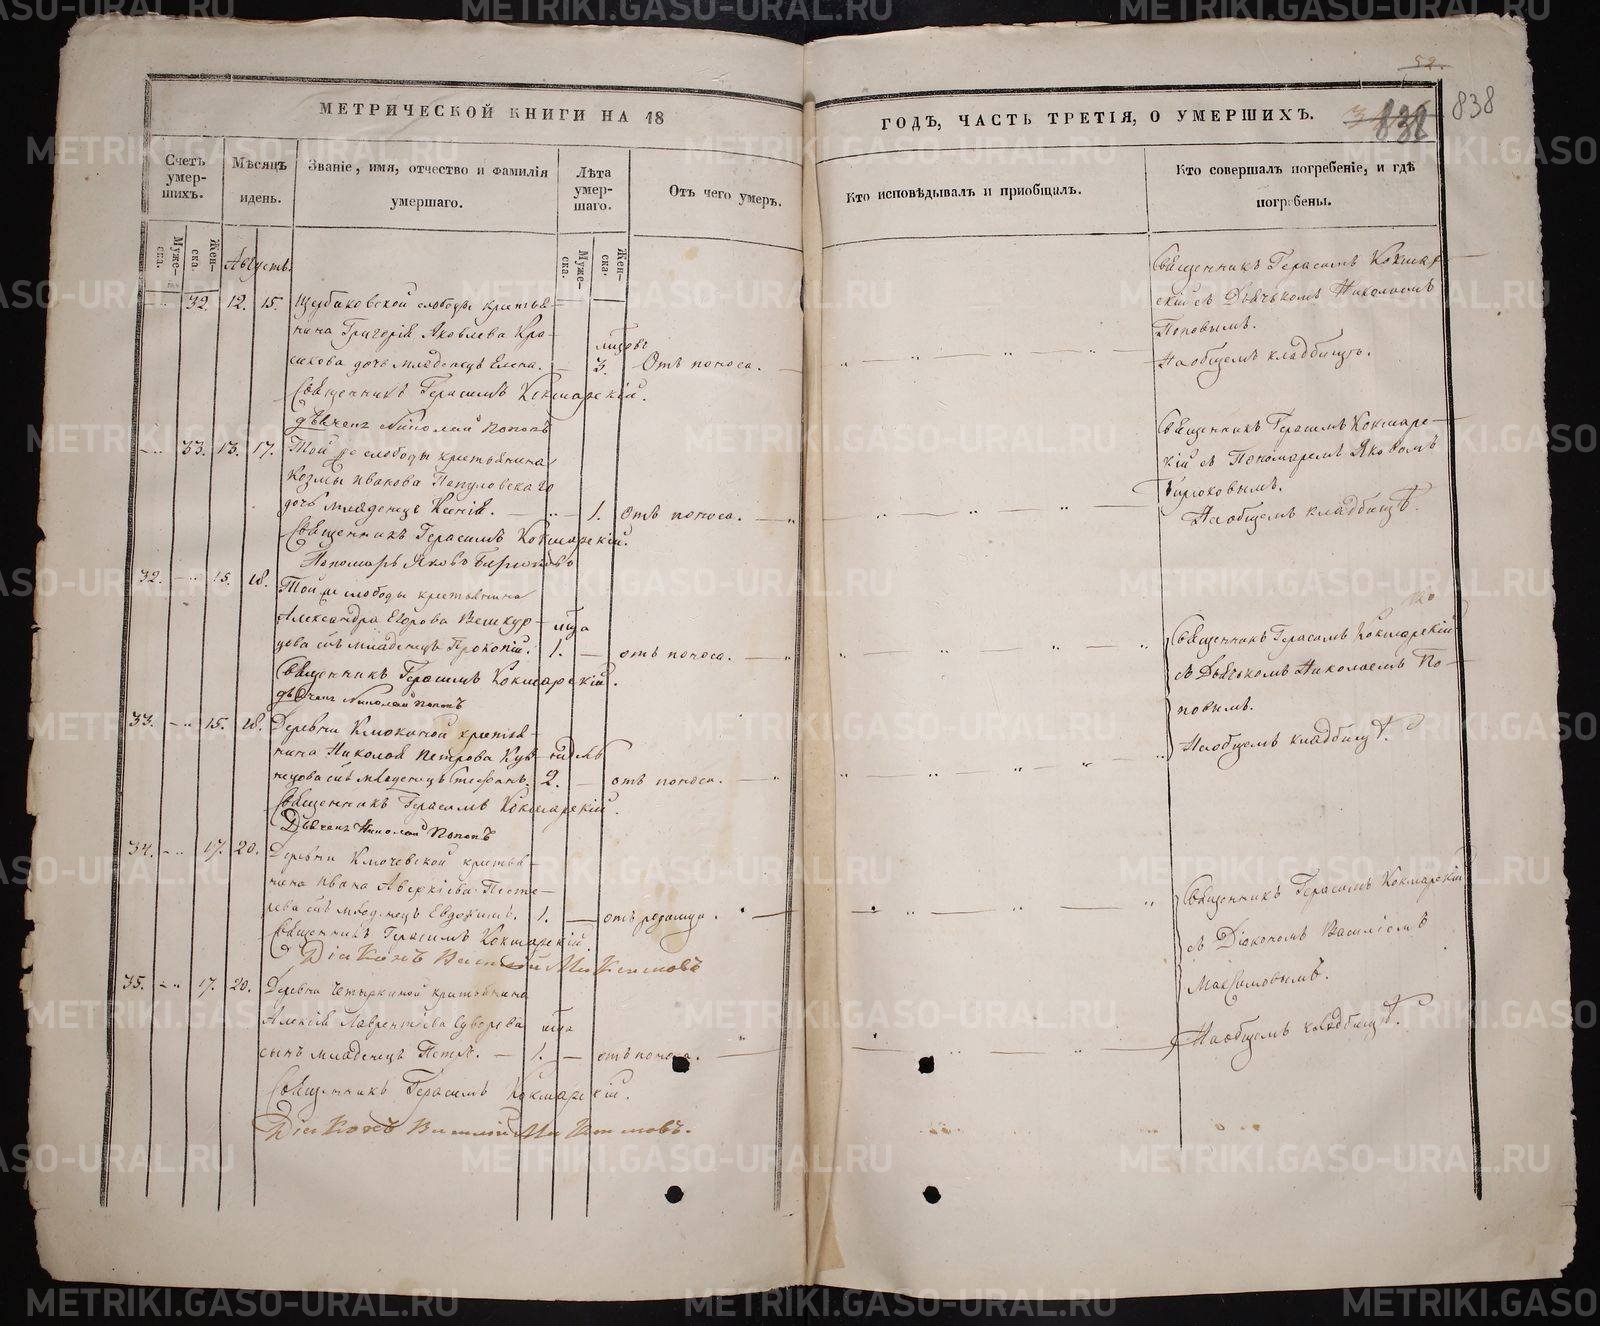 52.
838
838
МЕТРИЧЕСКОЙ КНИГИ НА 18
ГОДЪ, ЧАСТЬ ТРЕТІЯ, О УМЕРШИХЪ.
Счетъ умер-шихъ.
Мѣсяцъ и день.
Званіе, имя, отчество и фамилія умершаго.
Лѣта умер-шаго.
Отъ чего умеръ.
Кто исповѣдывалъ и пріобщалъ.
Кто совершалъ погребеніе, и гдѣ погребены.
Муже-ска.
Жен-ска.
Августъ.
Муже-ска.
Жен-ска.
32. 12. 15. слободы крестья-
нина Григорія Яковлева
дочь младенецъ Елена. 3. Отъ поноса.
Священникъ Герасимъ Кокшарскій.
Дьячекъ Николай Поповъ
Священникъ Герасимъ Кокшар-
скій съ Дьячькомъ Николаемъ
Поповымъ.
На общемъ кладбищѣ.
33. 13. 17. Той же слободы крестьянина
Козмы Иванова
дочь младенецъ Ксенія. 1. Отъ поноса.
Священникъ Герасимъ Кокшарскій.
Пономарь Яковъ Бирюковъ
Священникъ Герасимъ Кокшарс-
кій съ Пономаремъ Яковомъ
Бирюковымъ.
На общемъ кладбищѣ.
32. 15. 18. Той же слободы крестьянина
Александра Егорова
сынъ младенецъ Прокопій. 1. отъ поноса.
Священникъ Герасимъ Кокшарскій.
Дьячекъ Николай Поповъ
Священникъ Герасимъ Кокшарскій
съ Дьячькомъ Николаемъ По-
повымъ.
На общемъ кладбищѣ.
33. 15. 18. Деревни Клюкиной крестья-
нина Николая Петрова Куз- недѣль
нецова сынъ младенецъ Стефанъ. 2. отъ поноса.
Священникъ Герасимъ Кокшарскій.
Дьячекъ Николай Поповъ
34. 17. 20. Деревни Ключевской крестья-
нина Ивана Аверкіева Песте-
рева сынъ младенецъ Евдокимъ. 1. отъ родимца.
Священникъ Герасимъ Кокшарскій.
Діаконъ Василій Максимовъ
Священникъ Герасимъ Кокшарскій
съ Діакономъ Василіемъ
Максимовымъ.
На общемъ кладбищѣ.
35. 17. 20. Деревни Четыркиной крестьянина
Алексія Лаврентіева Суворева
сынъ младенецъ Петръ. 1. отъ поноса.
Священникъ Герасимъ Кокшарскій.
Діаконъ Василій Максимовъ.
METRIKI.GASO-URAL.RU